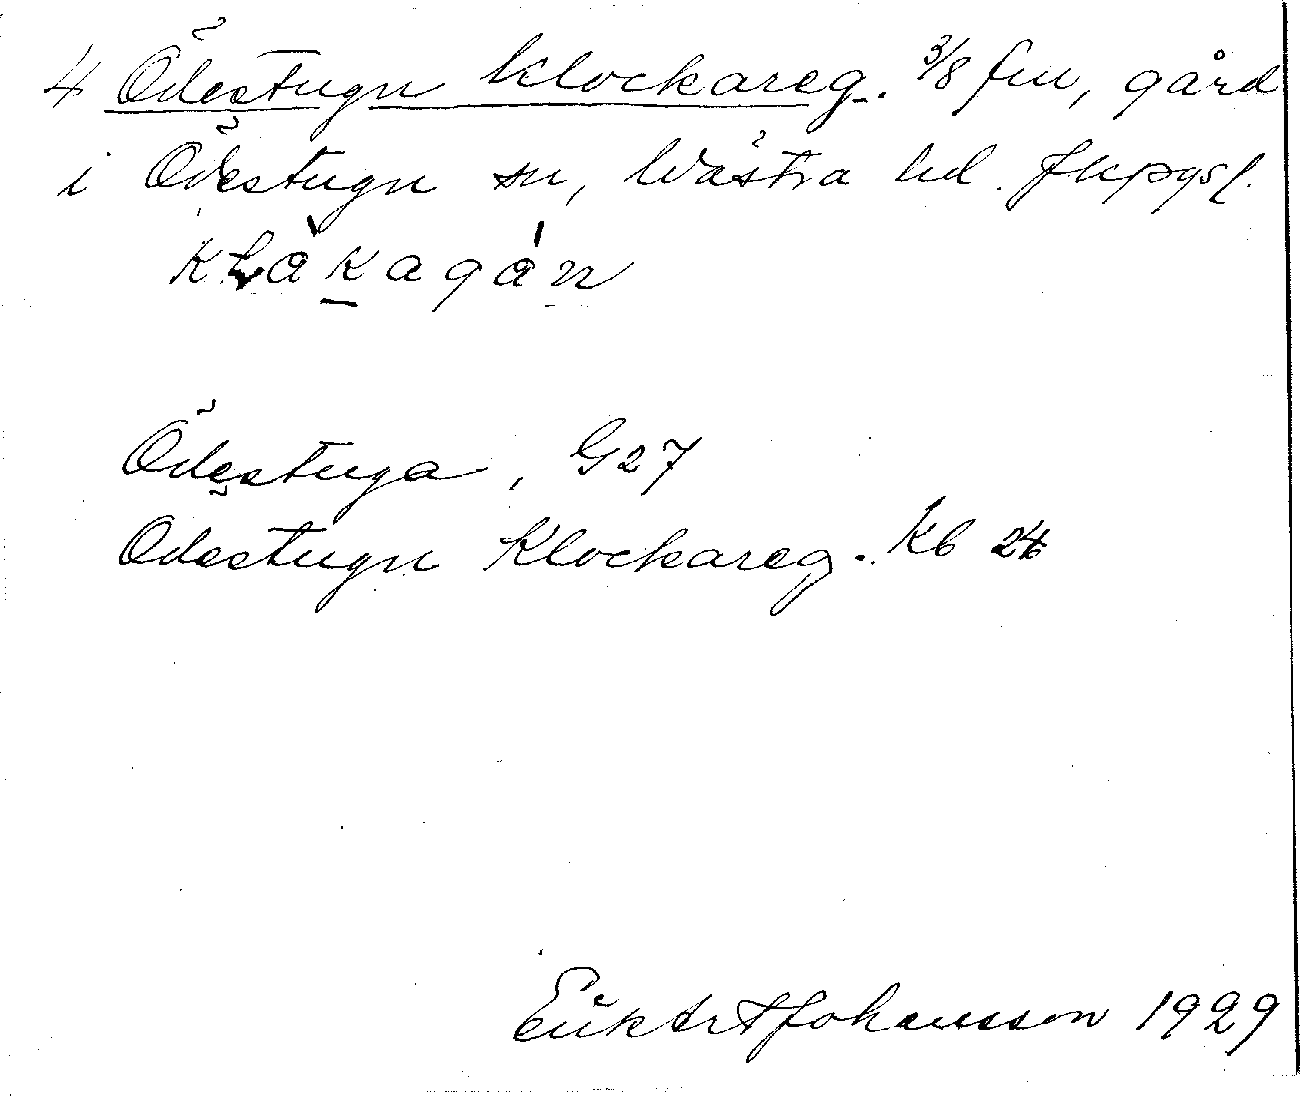 4 Ödestugu Klockareg. 3/8 fm, gård
i Ödestugu sn, Västra hd. Jkpgsl.
Klåkagån
Ödestuga, G27
Ödestugu Klockareg. Kb 24
Johansson 1929